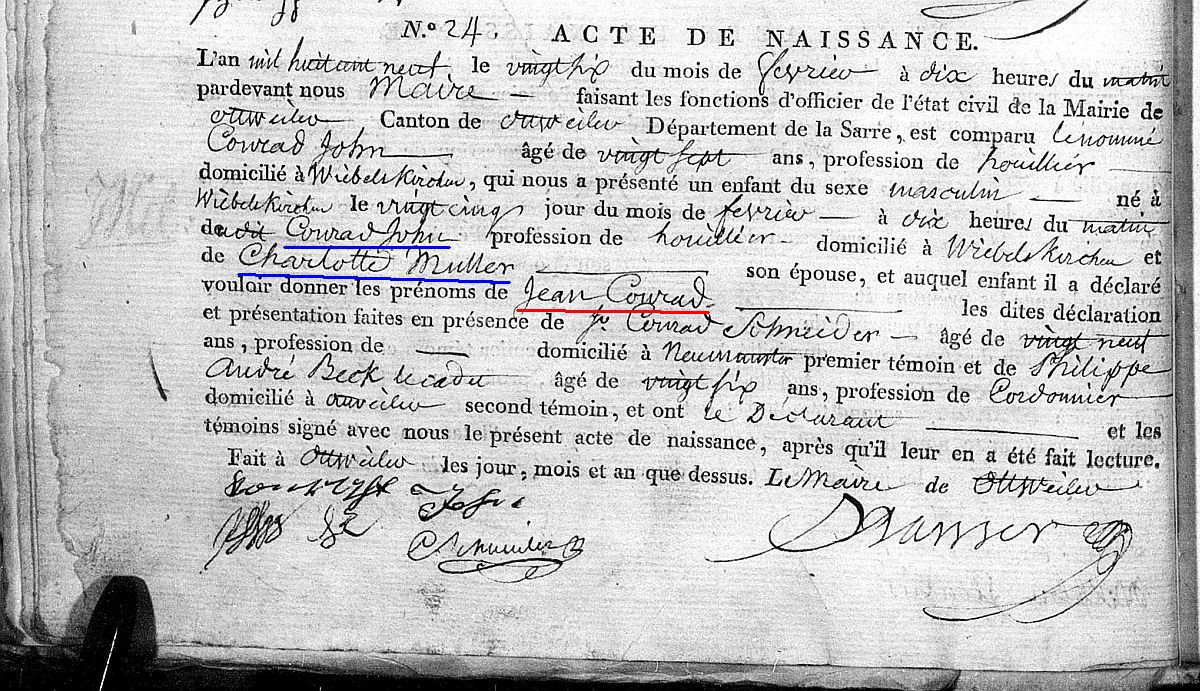 N.º 24. ACTE DE NAISSANCE.
L'an mil huit cent neuf le vingt six du mois de fevrier à dix heures du matin
pardevant nous Maire — faisant les fonctions d'officier de l'état civil de la Mairie de
Ottweiler Canton de Ottweiler Département de la Sarre, est comparu le nommé
Conrad John — âgé de vingt sept ans, profession de houillier —
domicilié à Wiebelskirchen, qui nous a présenté un enfant du sexe masculin — né à
Wiebelskirchen le vingt cinq jour du mois de fevrier — à dix heures du matin
de dit Conrad John profession de houillier — domicilié à Wiebelskirchen et
de Charlotte Muller — son épouse, et auquel enfant il a déclaré
vouloir donner les prénoms de Jean Conrad — les dites déclaration
et présentation faites en présence de Conrad Schneider — âgé de vingt neuf
ans, profession de — domicilié à Neumunster premier témoin et de Philippe
André Beck le cadet — âgé de vingt six ans, profession de Cordonnier
domicilié à Ottweiler second témoin, et ont le Déclarant — et les
témoins signé avec nous le présent acte de naissance, après qu'il leur en a été fait lecture.
Fait à Ottweiler les jour, mois et an que dessus. Le Maire de Ottweiler
John
C Schneider